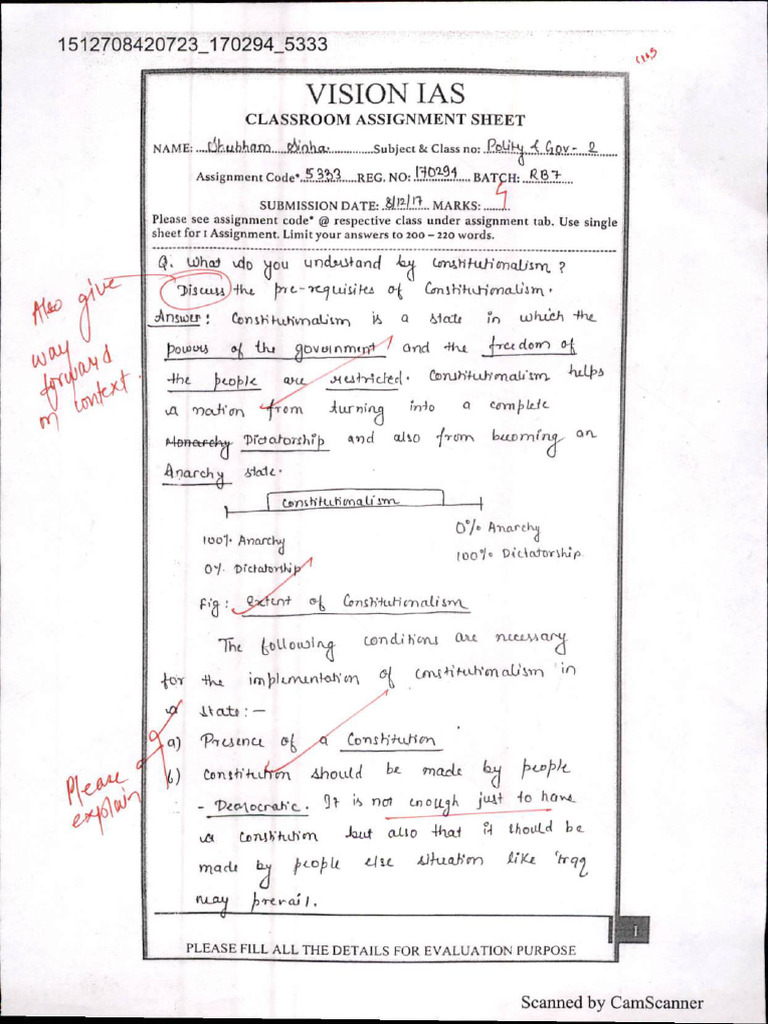 1512708420723_170294_5333
VISION IAS
CLASSROOM ASSIGNMENT SHEET
NAME:....Shubham Sinha...............Subject & Class no: Polity & Gov - 2
Assignment Code*.5333....REG. NO: 170294 BATCH: RB7
SUBMISSION DATE: 8/12/17 MARKS:
Please see assignment code* @ respective class under assignment tab. Use single
sheet for 1 Assignment. Limit your answers to 200 – 220 words.
Q. What do you understand by Constitutionalism ?
Discuss the pre-requisites of Constitutionalism.
Also give
way
forward
on context.
Answer: Constitutionalism is a state in which the
powers of the government and the freedom of
the people are restricted. Constitutionalism helps
a nation from turning into a complete
Monarchy Dictatorship and also from becoming an
Anarchy state.
Constitutionalism
100% Anarchy
0% Dictatorship
0% Anarchy
100% Dictatorship.
Fig: extent of Constitutionalism
The following conditions are necessary
for the implementation of constitutionalism in
a state:-
a) Presence of a Constitution
b) Constitution should be made by people
Please
explain
- Democratic. It is not enough just to have
a constitution but also that it should be
made by people else situation like Iraq
may prevail.
1
PLEASE FILL ALL THE DETAILS FOR EVALUATION PURPOSE
Scanned by CamScanner